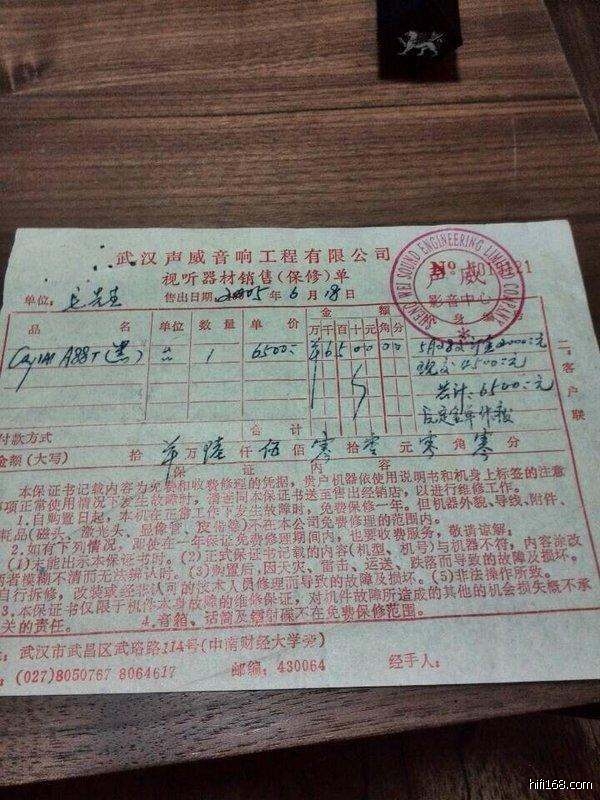 武汉声威音响工程有限公司
视听器材销售(保修)单
№
SHENG WEI SOUND ENGINEERING LIMITED COMPANY
声威
影音中心
单位:
售出日期 2005年6月18日
品名 单位 数量 单价 金额 万千百十元角分 机身编号
A88T (黑) 台 1 6500:- ¥6500000
5月28交订金2000元
现交4500元
共计:6500元
合计
付款方式
金额(大写) 拾 万陆仟伍佰零拾零元零角零分
二:客户联
保证内容
本保证书记载内容为免费和收费修理的凭据,贵户机器依使用说明书和机身上标签的注意
事项正常使用情况下发生故障时,请密同本保证书送至售出经销店,以进行维修工作。
1.自购置日起,本机在正常工作下发生故障时,免费保修一年。但机器外貌、导线、附件、
耗品(磁头、激光头、显像管、皮带等)不在本公司免费修理的范围内。
2.如有下列情况,即使在一年保证免费修理期间内,也要收费服务,敬请谅解:
(1)未能出示本保证书时。(2)正式保证书记载的内容(机型、机号)与机器不符,内容涂改
者模糊不清而无法辨认时。(3)购置后,因天灾、雷击、运送、跌落而导致的故障及损坏。
自行拆修,改装或经非认可的技术人员修理而导致的故障及损坏。(5)非法操作所致。
3.本保证书仅限于机件本身故障的维修保证,对机件故障所造成的其他的机会损失概不承
关的责任。 4.音箱、话筒及镭射碟不在免费保修范围。
:武汉市武昌区武珞路114号(中南财经大学旁)
:(027)8050767 8064617 邮编:430064 经手人:
hifi168.com